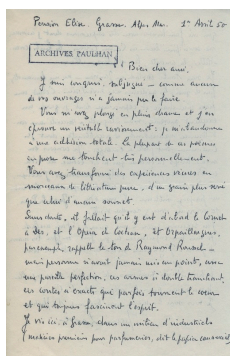 Pension Elise. Grasse. Alpes Mar. 1er Avril 50
ARCHIVES PAULHAN
Bien cher ami,
Je suis conquis, subjugué – comme aucun
de vos ouvrages n'a jamais pu le faire.
Vous m'avez plongé en plein drame et j'en
éprouve un véritable ravissement : je m'abandonne
à une adhésion totale. La plupart de ces poèmes
en prose me touchent très personnellement.
Vous avez transformé des expériences vécues en
morceaux de littérature pure, d'un grain plus serré
que celui d'aucun sonnet
Sans doute, il fallait qu'il y eut d'abord le Cornet
à Dés, et l'Opéra de Cocteau, et
par exemple, rappelle le ton de Raymond Roussel –
mais personne n'avait jamais mis au point, avec
une pareille perfection, ces armes à double tranchant,
ces contes si exacts que parfois tournent le
et qui toujours fascinent l'esprit.
Je vis ici, à Grasse, dans un milieu d'industriels
(matières premières pour parfumeries, dit le papier commercial)